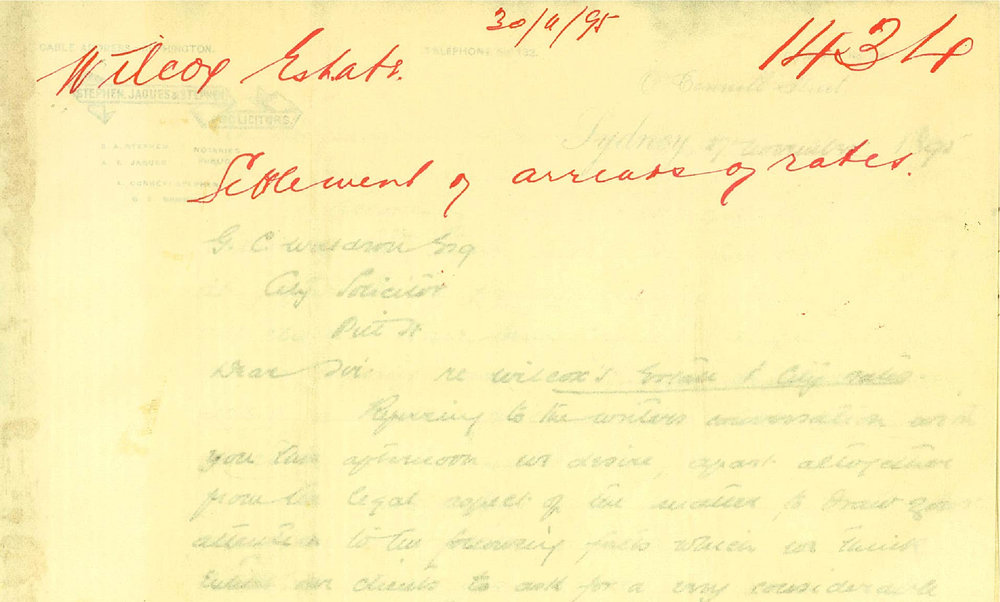 30/11/95
1434
Wilcox Estate.
TELEPHONE No 132.
STEPHEN, JAQUES & STEPHEN
SOLICITORS.
O'Connell Street
Sydney, November 1895
S. A. STEPHEN NOTARIES
A. E. JAQUES PUBLIC
Settlement of arrears of rates.
G. C. Waldron Esq
City Solicitor
Pitt St
Dear Sir re Wilcox's Estate & City rates.
Referring to the writers conversation with
you this afternoon we desire, apart altogether
from the legal aspect of the matter to draw your
attention to the following facts which we think
entitle our clients to ask for a very considerable